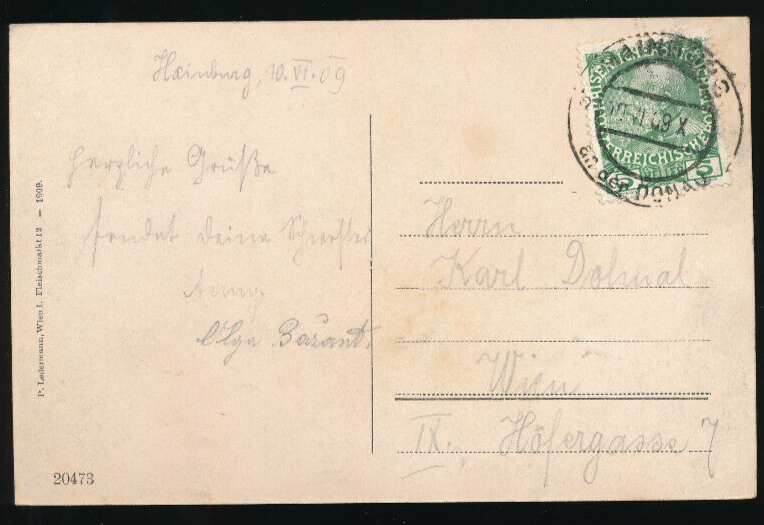 Hainburg, 10. VI. 09
Herzliche Grüße
sendet deine Schwester
Anna
Olga Bažant.
Herrn
Karl Dolmal
Wien
IX., Höfergasse 7
HAINBURG
10.VI.09 X
an der DONAU
ÖSTERREICHISCHE
5
P. Ledermann, Wien I. Fleischmarkt 12 – 1909.
20473